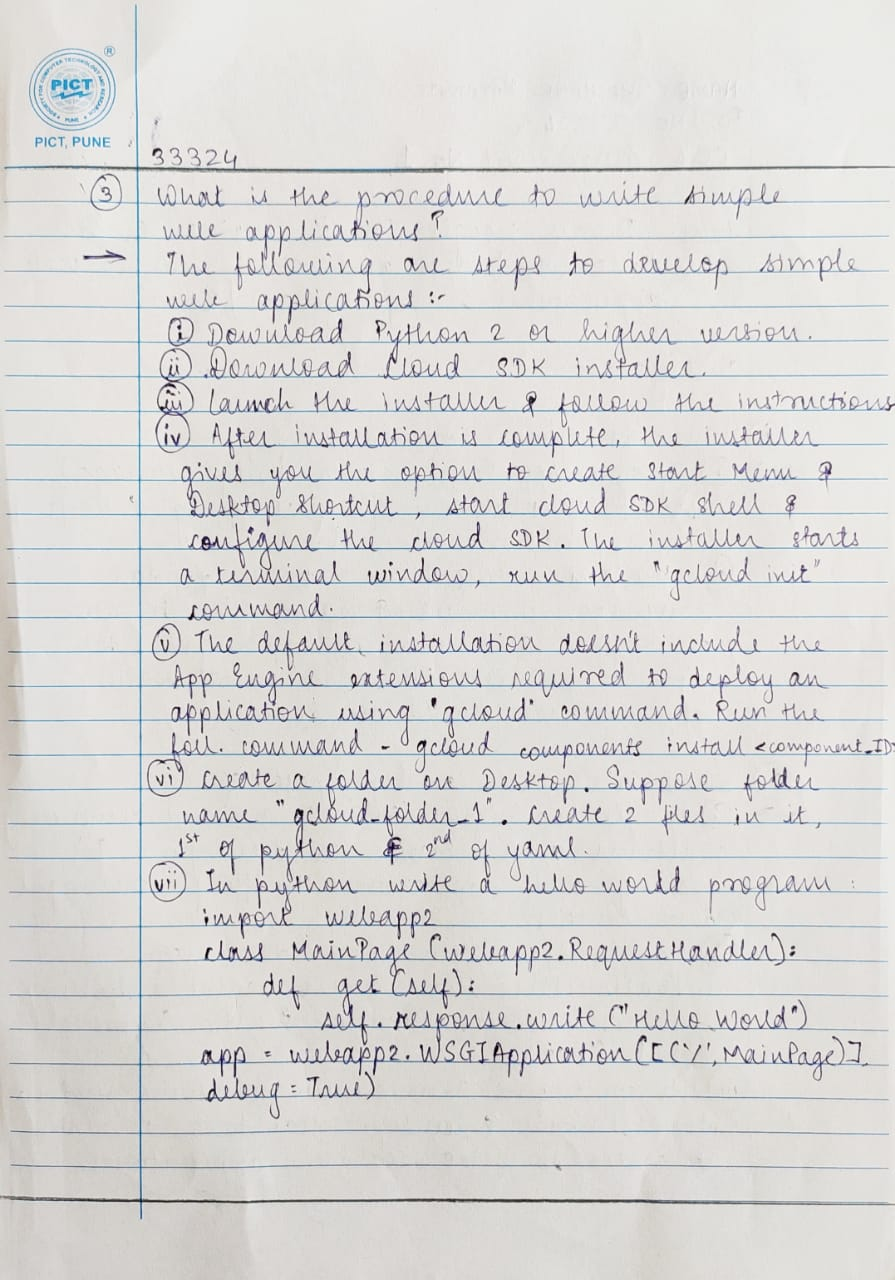 ®
SOCIETY FOR COMPUTER TECHNOLOGY AND RESEARCH
PICT
PUNE
PICT, PUNE
33324
③ What is the procedure to write simple
web applications?
→ The following are steps to develop simple
web applications :-
(i) Download Python 2 or higher version.
(ii) Download Cloud SDK installer.
(iii) Launch the installer & follow the instructions
(iv) After installation is complete, the installer
gives you the option to create Start Menu &
Desktop Shortcut, start cloud SDK shell &
configure the cloud SDK. The installer starts
a terminal window, run the "gcloud init"
command.
(v) The default installation doesn't include the
App Engine extensions required to deploy an
application using 'gcloud' command. Run the
foll. command - gcloud components install <component_ID>
(vi) Create a folder on Desktop. Suppose folder
name "gcloud_folder_1". Create 2 files in it,
1st of python & 2nd of yaml.
(vii) In python write a hello world program :
import webapp2
class MainPage (webapp2.RequestHandler):
def get (self):
self.response.write ("Hello World")
app = webapp2.WSGIApplication ([('/', MainPage)],
debug = True)